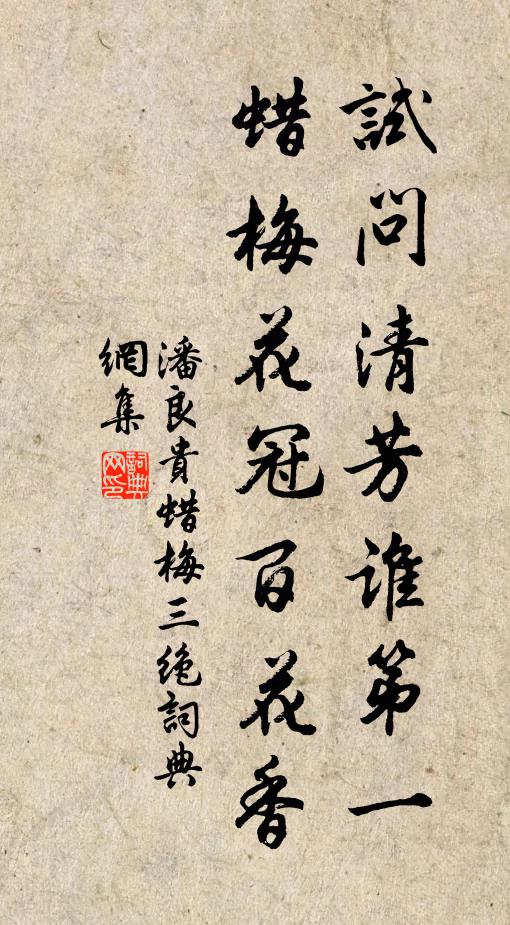 試問清芳誰第一
蜡梅花冠百花香
潘良貴蜡梅三絶詞典
網集
詞典
网印